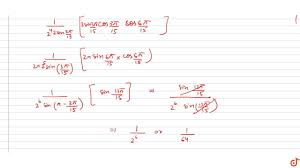 1/(2^4 2 sin 3π/15) [2 sin 3π/15 cos 3π/15 cos 6π/15]
1/(2×2^4 sin(3π/15)) [2 sin 6π/15 × cos 6π/15]
1/(2^6 sin(π - 3π/15)) [sin 12π/15] = sin 12π/15 / (2^6 sin(12π/15))
⇒ 1/2^6 or 1/64